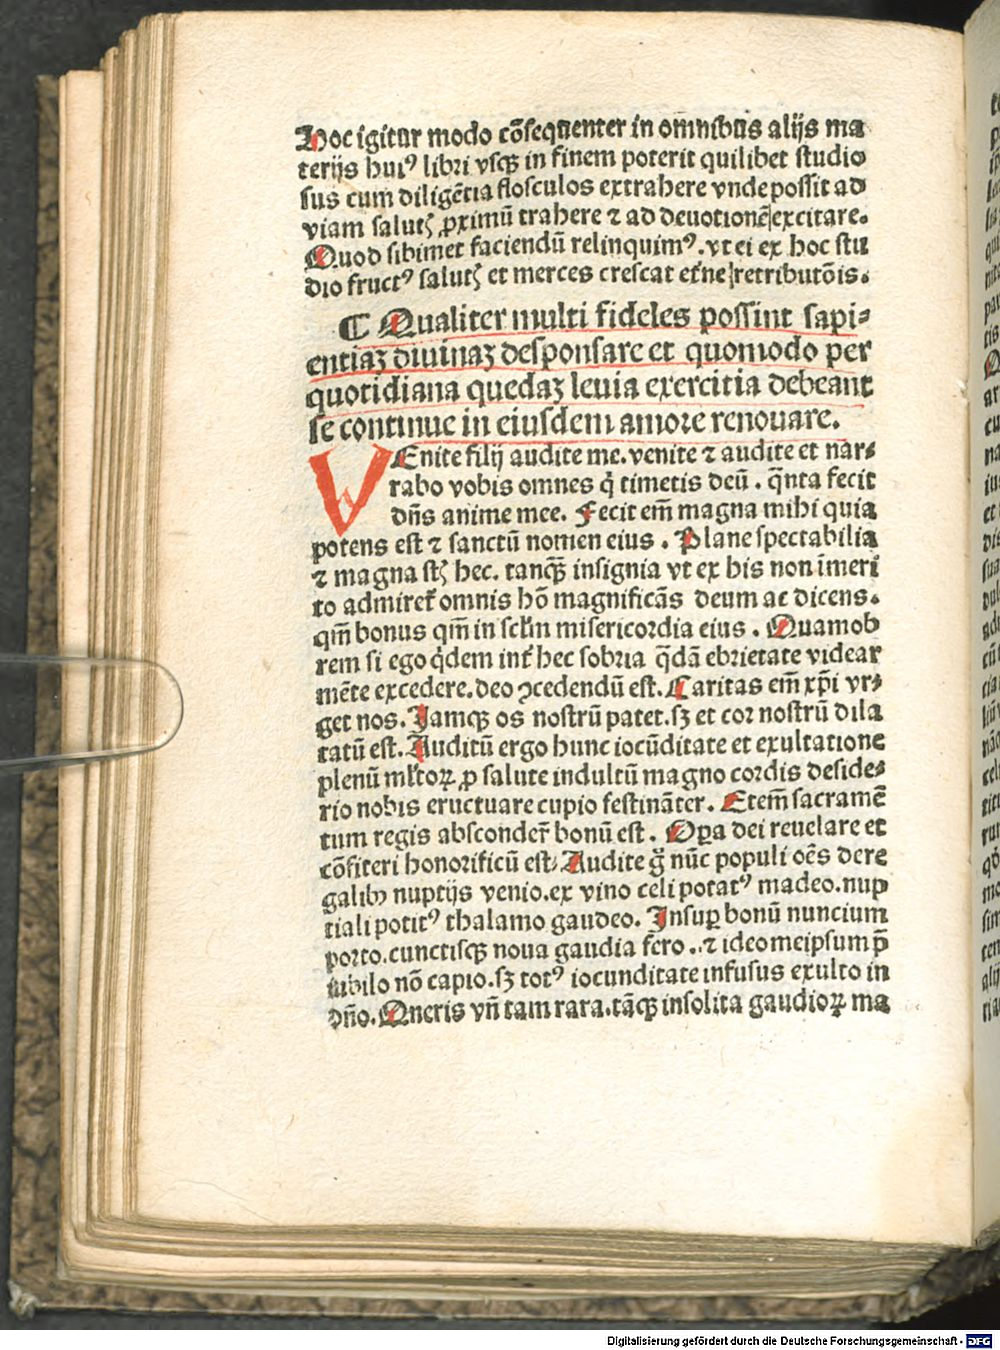 Hoc igitur modo cõsequenter in omnibus alijs ma
terijs huiꝰ libri vsqꝫ in finem poterit quilibet studio
sus cum diligẽtia flosculos extrahere vnde possit ad
viam salutꝭ ꝓximũ trahere ⁊ ad deuotionẽ excitare.
Quod sibimet faciendũ relinquimꝰ. vt ei ex hoc stu
dio fructꝰ salutꝭ et merces crescat et̃ne retributõis.
¶ Qualiter multi fideles possint sapi⸗
entiaꝫ diuinaꝫ desponsare et quomodo per
quotidiana quedaꝫ leuia exercitia debeant
se continue in eiusdem amore renouare.
VEnite filij audite me. venite ⁊ audite et nar⸗
rabo vobis omnes q̇ timetis deũ. q̃nta fecit
dñs anime mee. Fecit em̃ magna mihi quia
potens est ⁊ sanctũ nomen eius. Plane spectabilia
⁊ magna st̃ hec. tanqꝫ̃ insignia vt ex his non ĩmeri
to admiret̃ omnis hõ magnificãs deum ac dicens.
qm̃ bonus qm̃ in scl̃m misericordia eius. Quamob
rem si ego q̇dem int̃ hec sobria q̃dã ebrietate videar
mẽte excedere. deo ꝯcedendũ est. Caritas em̃ xp̃i vr⸗
get nos. Iamqꝫ os nostrũ patet. sꝫ et cor nostrũ dila
tatũ est. Auditũ ergo hunc iocũditate et exultatione
plenũ ml̕toꝝ ꝓ salute indultũ magno cordis deside⸗
rio nobis eructuare cupio festinãter. Etem̃ sacramẽ
tum regis absconder̃ bonũ est. Oꝑa dei reuelare et
cõfiteri honorificũ est. Audite g̃ nũc populi oẽs de re
galibꝫ nuptijs venio. ex vino celi potatꝰ madeo. nup
tiali potitꝰ thalamo gaudeo. Insuꝑ bonũ nuncium
porto. cunctisqꝫ noua gaudia fero. ⁊ ideo meipsum p̃
iubilo nõ capio. sꝫ totꝰ iocunditate infusus exulto in
dño. Queris vñ tam rara. tãqꝫ insolita gaudioꝝ ma
Digitalisierung gefördert durch die Deutsche Forschungsgemeinschaft - DFG